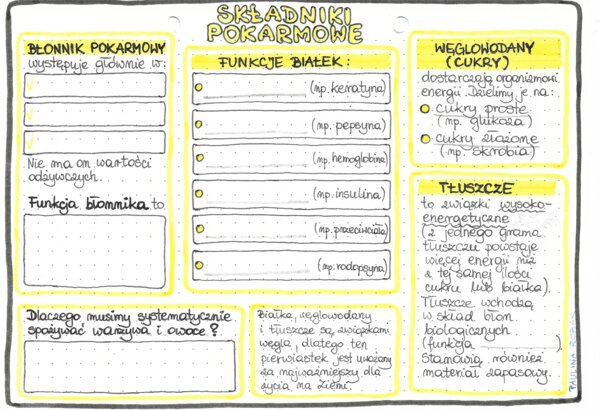 SKŁADNIKI
POKARMOWE
BŁONNIK POKARMOWY
występuje głównie w:
Nie ma on wartości
odżywczych.
Funkcja błonnika to
FUNKCJE BIAŁEK:
(np. keratyna)
(np. pepsyna)
(np. hemoglobina)
(np. insulina)
(np. przeciwciała)
(np. rodopsyna)
WĘGLOWODANY
(CUKRY)
dostarczają organizmowi
energii. Dzielimy je na:
cukry proste
(np. glukoza)
cukry złożone
(np. skrobia)
TŁUSZCZE
to związki wysoko-
energetyczne
(z jednego grama
tłuszczu powstaje
więcej energii niż
z tej samej ilości
cukru lub białka).
Tłuszcze wchodzą
w skład błon
biologicznych
(funkcja ________)
Stanowią również
materiał zapasowy.
Dlaczego musimy systematycznie
spożywać warzywa i owoce?
Białka, węglowodany
i tłuszcze są związkami
węgla, dlatego ten
pierwiastek jest uważany
za najważniejszy dla
życia na Ziemi.
PAULINA